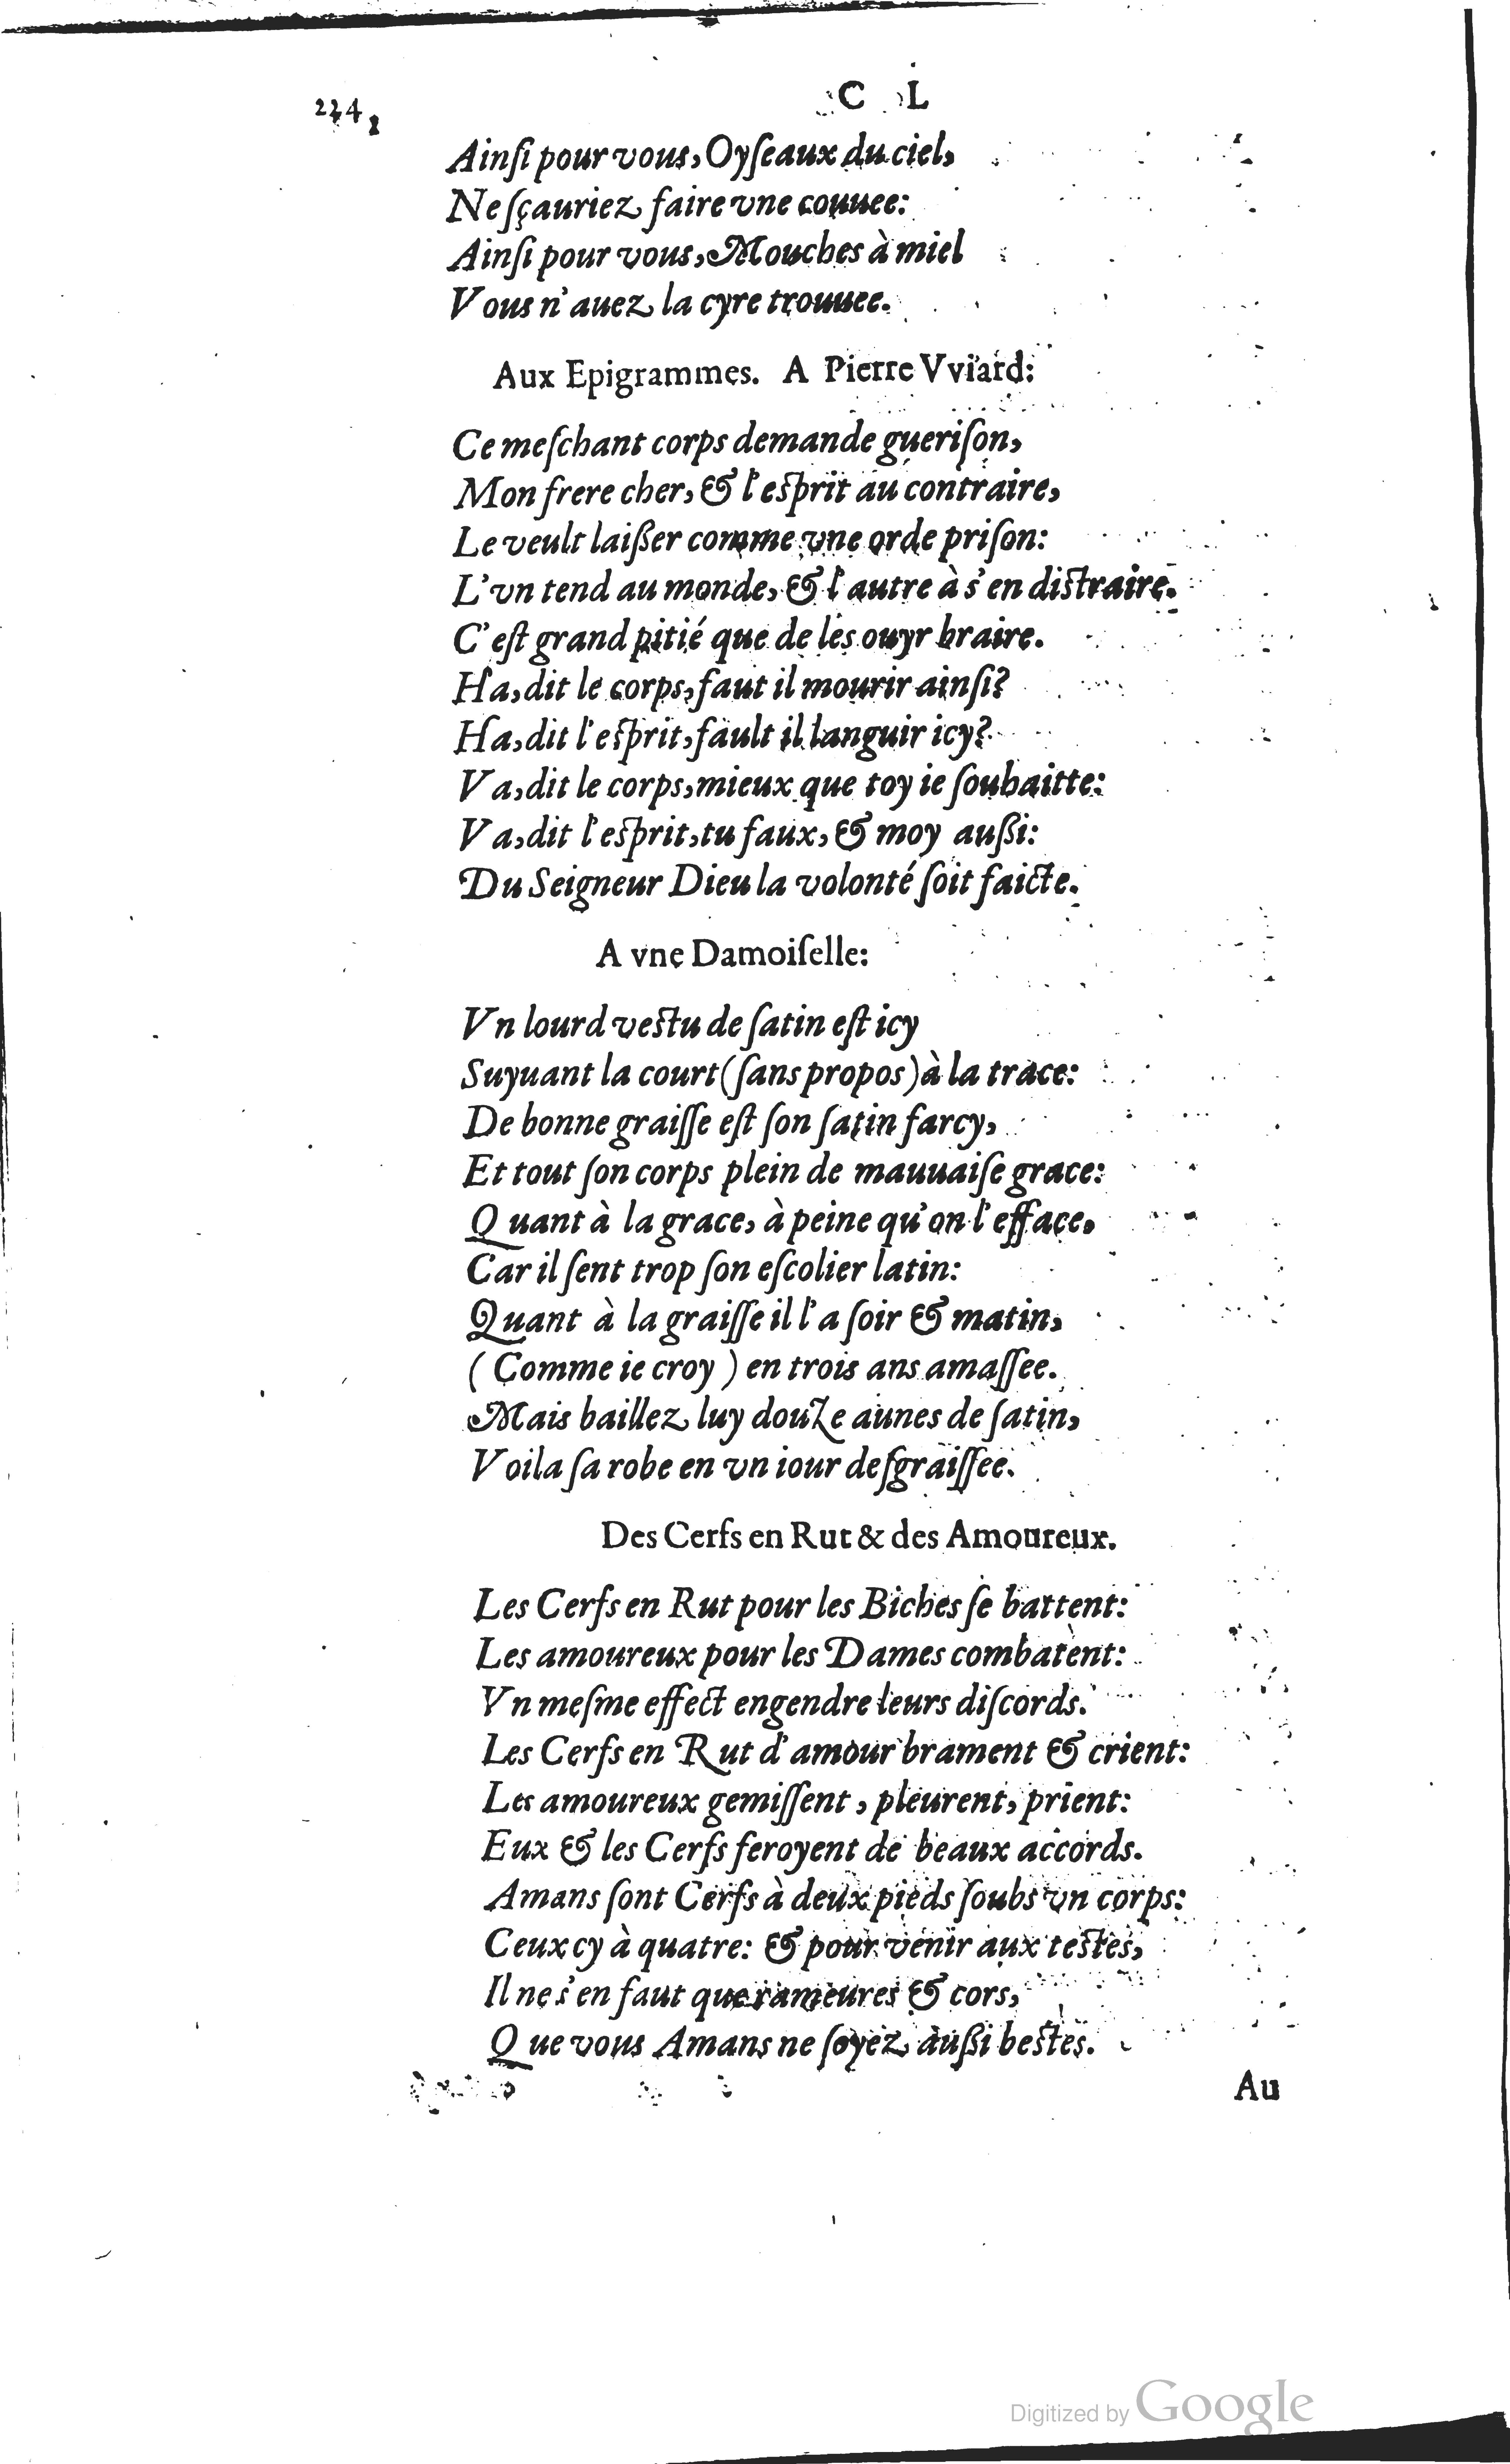 234
C L
Ainſi pour vous, Oyſeaux du ciel,
Ne ſçauriez faire vne couuee:
Ainſi pour vous, Mouches à miel
Vous n'auez la cyre trouuee.
Aux Epigrammes. A Pierre Vviard:
Ce meſchant corps demande gueriſon,
Mon frere cher, & l'eſprit au contraire,
Le veult laißer comme vne orde priſon:
L'vn tend au monde, & l'autre à s'en diſtraire.
C'eſt grand pitié que de les ouyr braire.
Ha, dit le corps, faut il mourir ainſi?
Ha, dit l'eſprit, fault il languir icy?
Va, dit le corps, mieux que toy ie ſouhaitte:
Va, dit l'eſprit, tu faux, & moy außi:
Du Seigneur Dieu la volonté ſoit faicte.
A vne Damoiſelle:
Vn lourd veſtu de ſatin eſt icy
Suyuant la court (ſans propos) à la trace:
De bonne graiſſe eſt ſon ſatin farcy,
Et tout ſon corps plein de mauuaiſe grace:
Quant à la grace, à peine qu'on l'efface,
Car il ſent trop ſon eſcolier latin:
Quant à la graiſſe il l'a ſoir & matin,
(Comme ie croy) en trois ans amaſſee.
Mais baillez luy douze aunes de ſatin,
Voila ſa robe en vn iour deſgraiſſee.
Des Cerfs en Rut & des Amoureux.
Les Cerfs en Rut pour les Biches ſe battent:
Les amoureux pour les Dames combatent:
Vn meſme effect engendre leurs diſcords.
Les Cerfs en Rut d'amour brament & crient:
Les amoureux gemiſſent, pleurent, prient:
Eux & les Cerfs feroyent de beaux accords.
Amans ſont Cerfs à deux pieds ſoubs vn corps:
Ceux cy à quatre: & pour venir aux teſtes,
Il ne s'en faut que rameures & cors,
Que vous Amans ne ſoyez außi beſtes.
Au
Digitized by Google